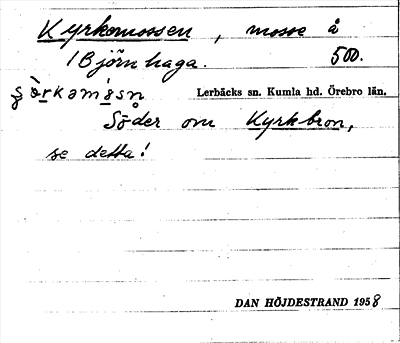 Kyrkomossen, mosse å
1 Björnhaga. 500.
Lerbäcks sn. Kumla hd. Örebro län.
Söder om Kyrkbron,
se detta!
DAN HÖJDESTRAND 1958